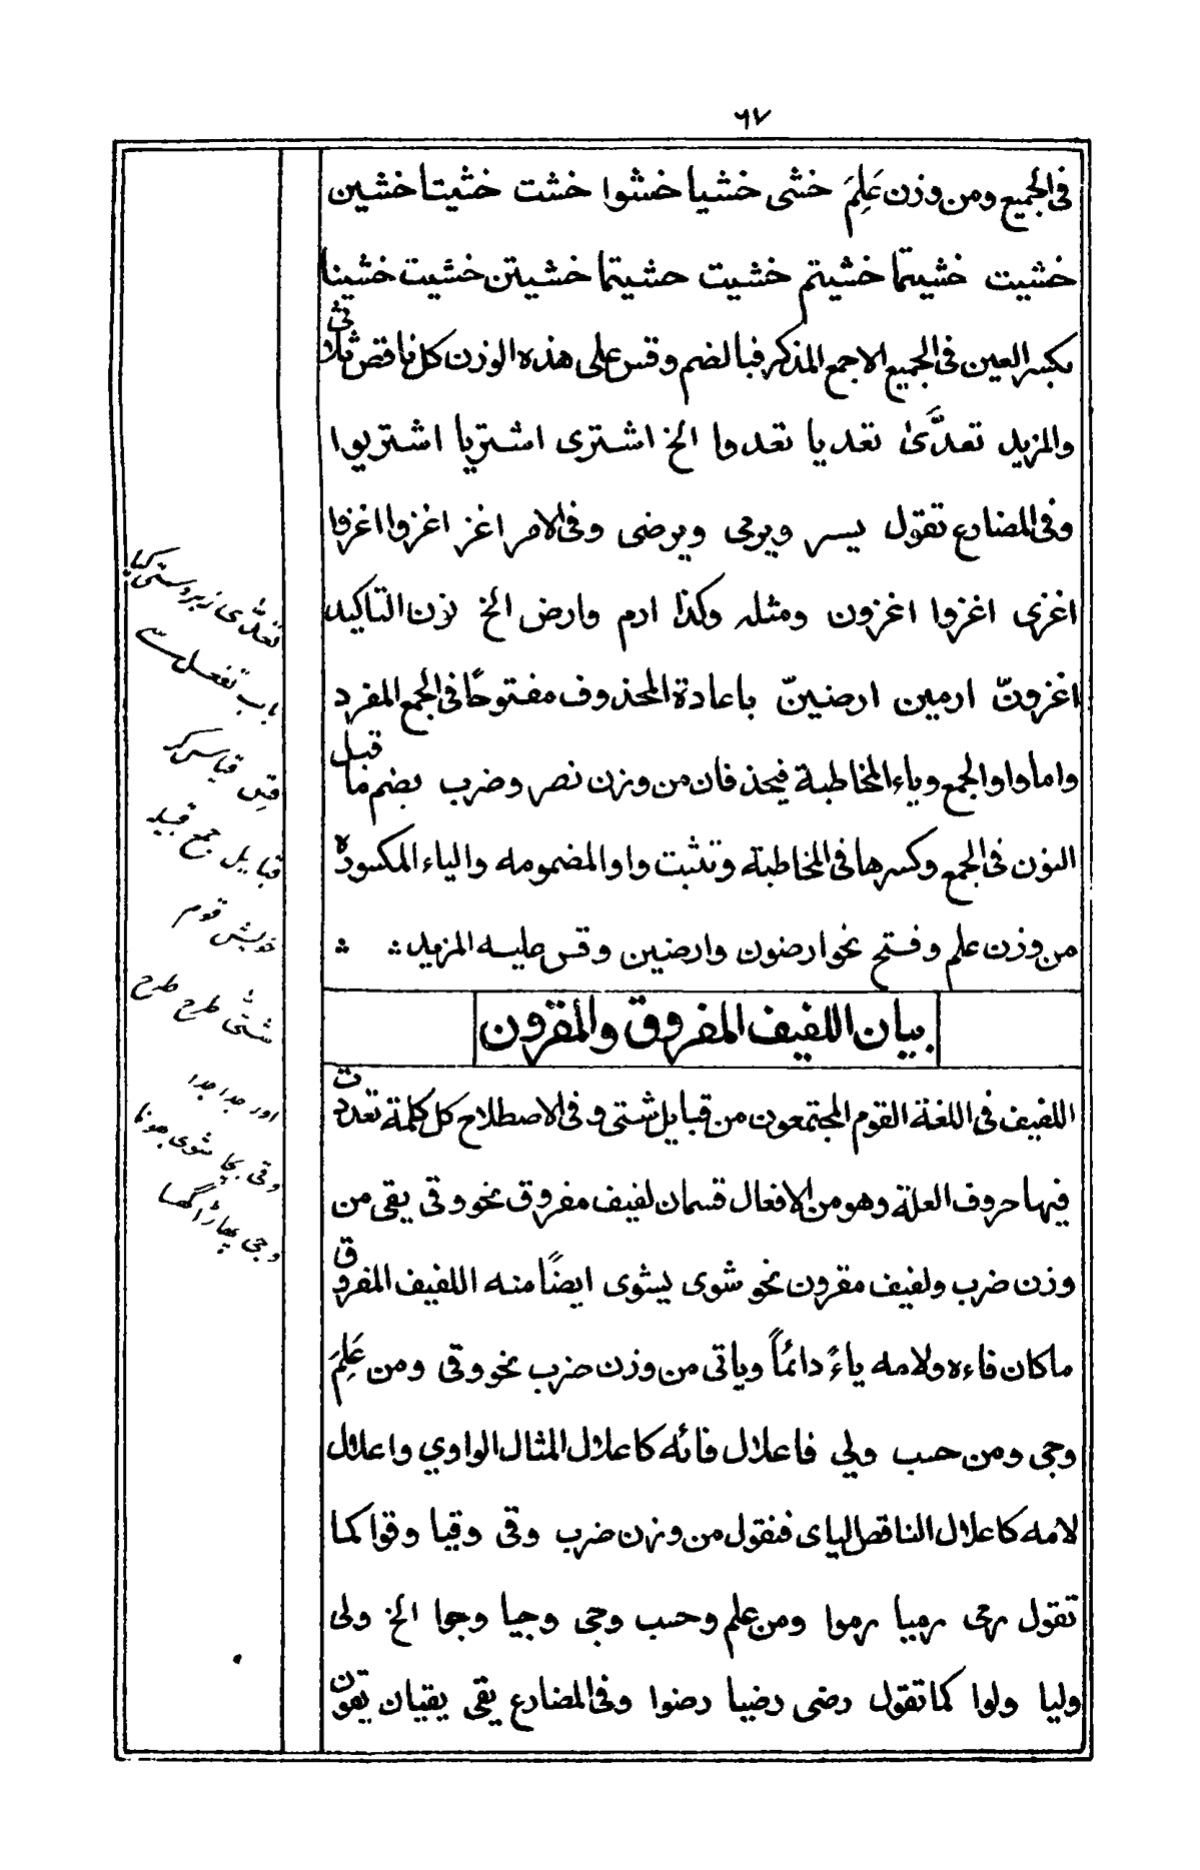 ٦٧
فى الجميع ومن وزن عَلِمَ خشى خشيا خشوا خشت خشيتا خشين
خشيت خشيتما خشيتم خشيت حشيتما خشيتن خشيت خشينا
بكسر العين فى الجميع الا جمع المذكر فبالضم وقس على هذه الوزن كل ناقص ثلاثى
والمزيد تعدَّىٰ تعديا تعدوا الخ اشترى اشتريا اشتريوا
وفى المضارع تقول يسر ويرمى ويرضى وفى الامر اغز اغزوا اغزوا
اغزى اغزوا اغزون ومثله وكذا ارم وارض الخ نون التاكيد
اغزونّ ارمين ارضينّ باعادة المحذوف مفتوحًا فى الجمع المفرد
واما واو الجمع وياء المخاطبة فيحذفان من وزن نصر وضرب بضم ما قبل
النون فى الجمع وكسرها فى المخاطبة وتثبت واو المضمومه والياء المكسورة
من وزن علم وفتح نحو ارضون وارضين وقس عليه المزيد
بيان اللفيف المفروق والمقرون
اللفيف فى اللغة القوم المجتمعون من قبايل شتى وفى الاصطلاح كل كلمة تعددت
فيها حروف العلة وهو من الافعال قسمان لفيف مفروق نحو وقى يقى من
وزن ضرب ولفيف مقرون نحو شوى يشوى ايضًا منه اللفيف المفروق
ما كان فاءه ولامه ياءً دائماً وياتى من وزن ضرب نحو وقى ومن عَلِمَ
وجى ومن حسب ولي فاعلال فائه كاعلال المثال الواوي واعلال
لامه كاعلال الناقص الياى فنقول من وزن ضرب وقى وقيا وقوا كما
تقول رمى رميا رموا ومن علم وحسب وجى وجيا وجوا الخ ولى
وليا ولوا كما تقول رضى رضيا رضوا وفى المضارع يقى يقيان يقون
تعدّى زبردستى كيا
باب تفعل سے
قِس قياس كر
قبايل جمع قبيله
خويش قوم
شتّى طرح طرح
اور جدا جدا
وقى بچا شوى بهونا
وجى گهسا